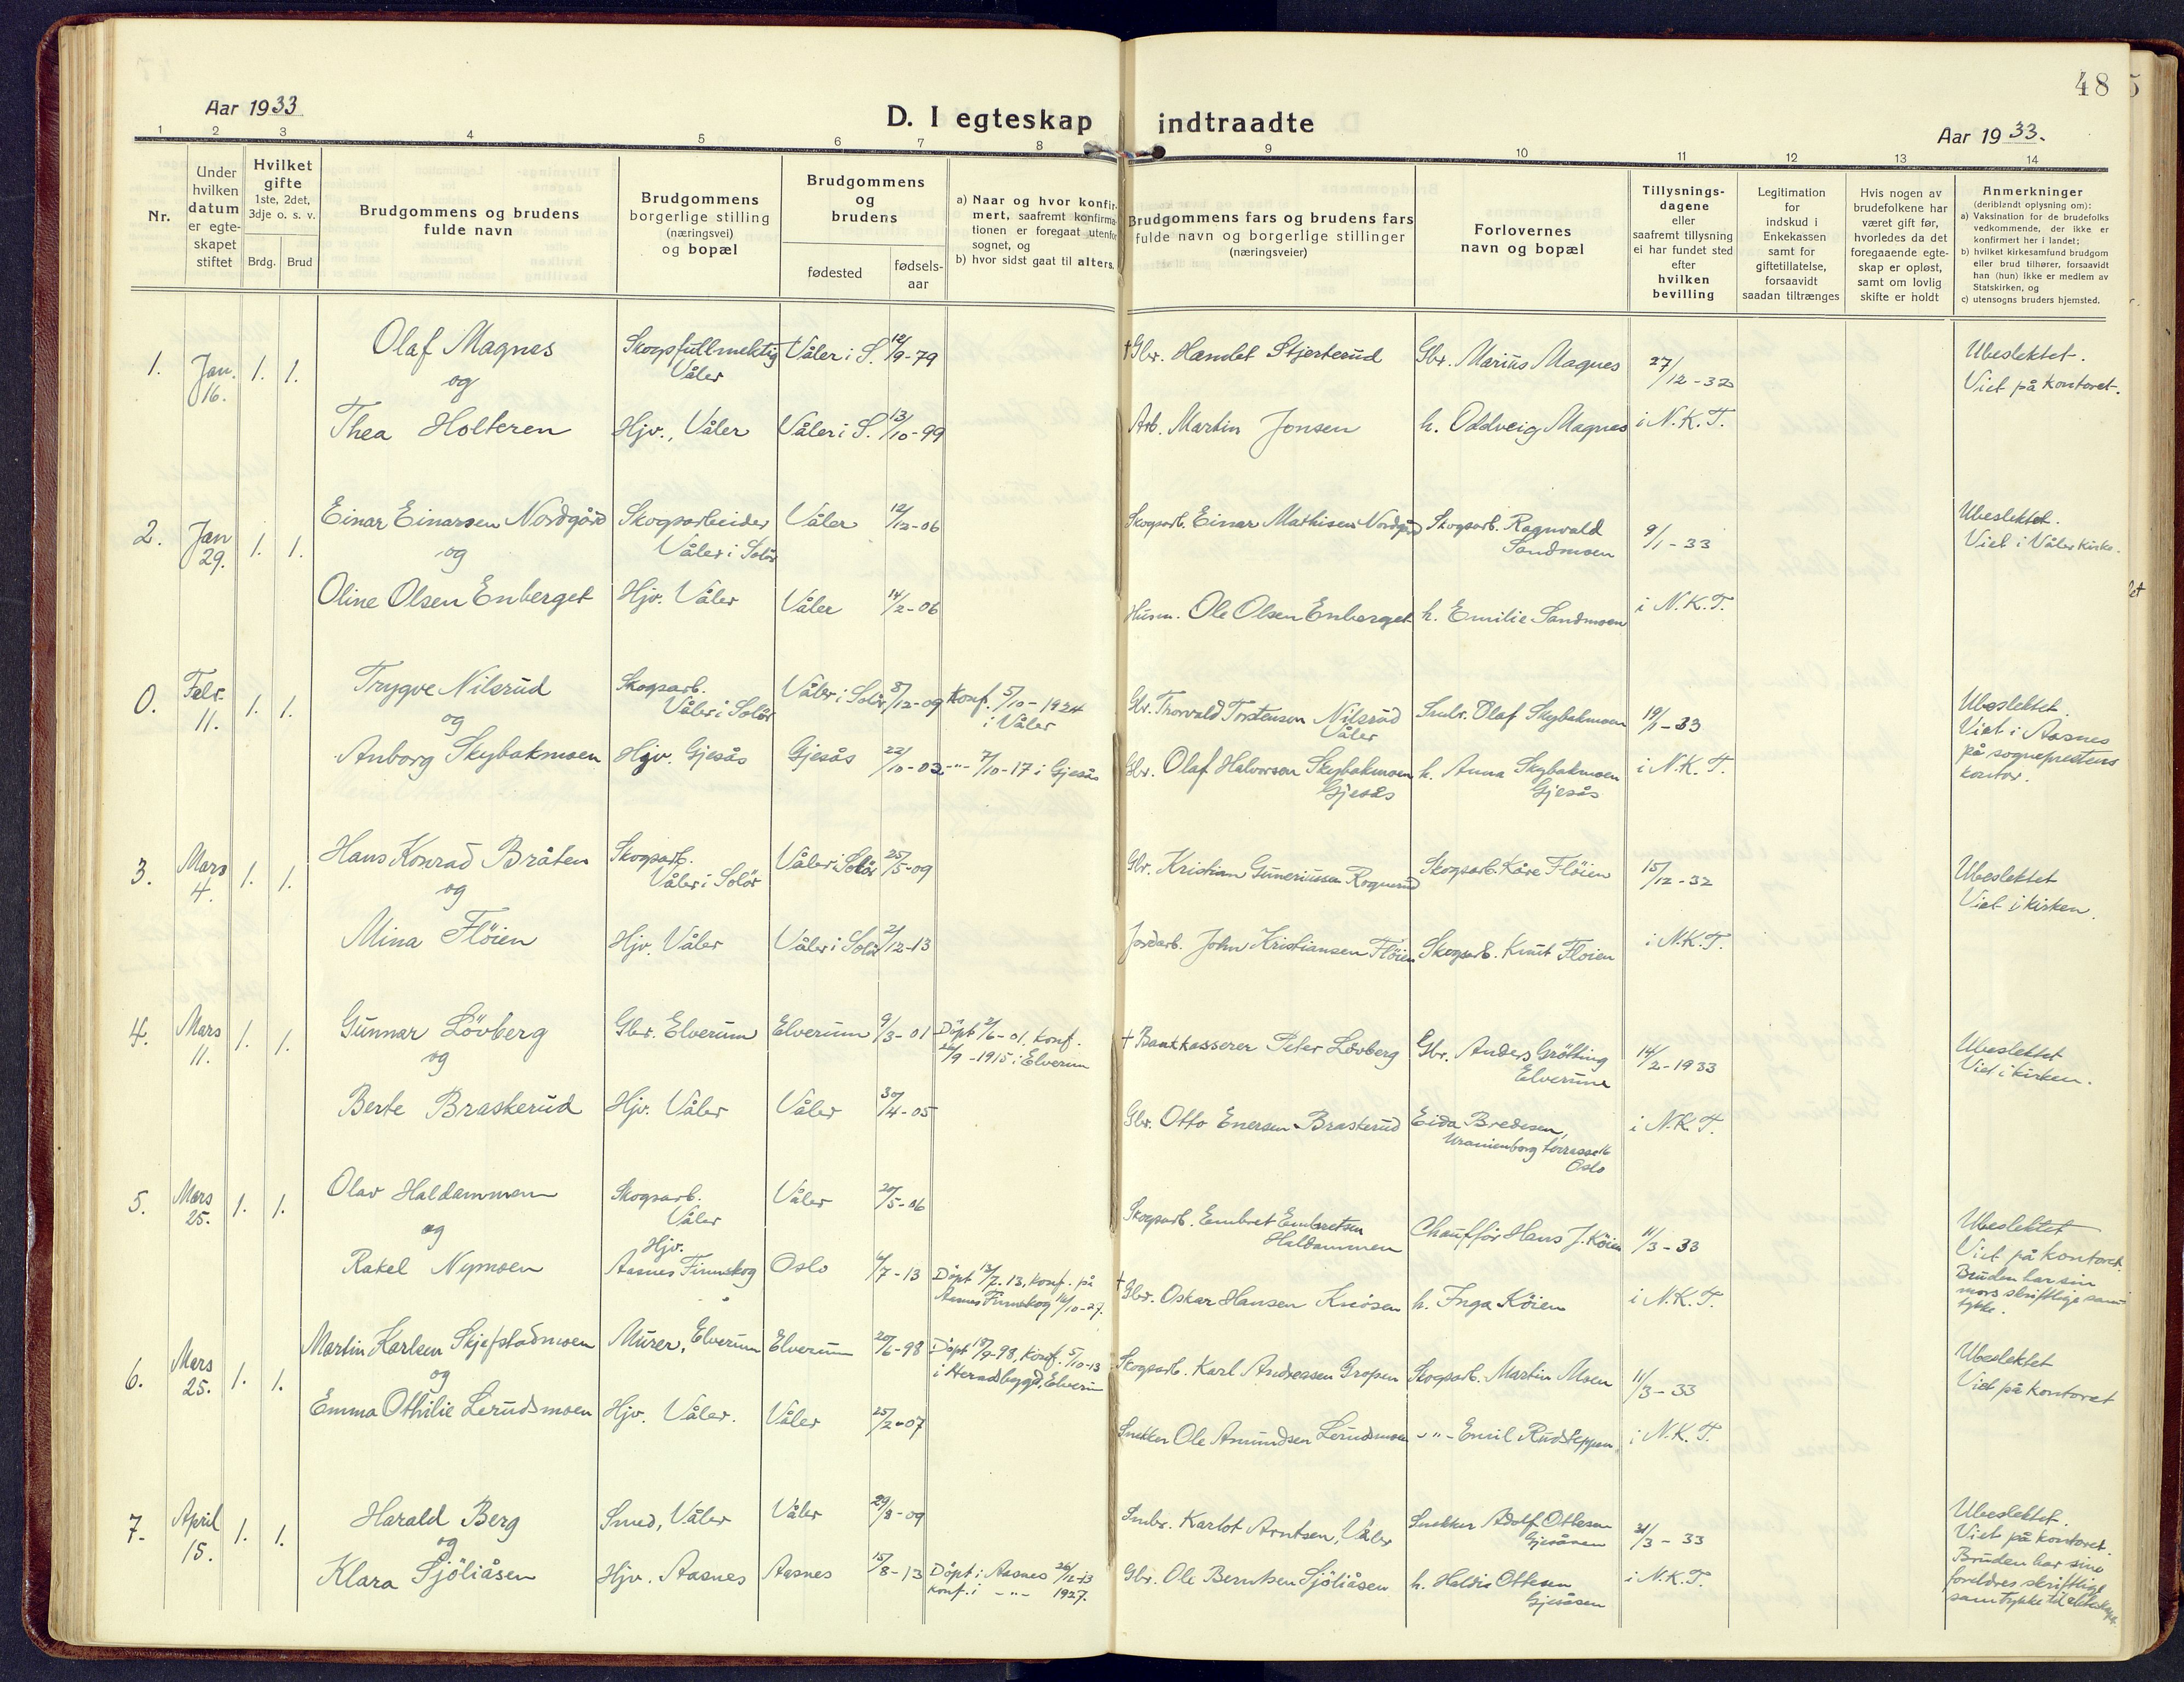 48
Aar 1933
D. I egteskap indtraadte
Aar 1933.
1 2 3 4 5 6 7 8 9 10 11 12 13 14
Nr.
Under hvilken datum er egteskapet stiftet
Hvilket gifte 1ste, 2det, 3dje o. s. v.
Brdg. Brud
Brudgommens og brudens fulde navn
Brudgommens borgerlige stilling (næringsvei) og bopæl
Brudgommens og brudens
fødested
fødsels-aar
a) Naar og hvor konfirmert, saafremt konfirmationen er foregaat utenfor sognet, og
b) hvor sidst gaat til alters.
Brudgommens fars og brudens fars fulde navn og borgerlige stillinger (næringsveier)
Forlovernes navn og bopæl
Tillysningsdagene eller saafremt tillysning ei har fundet sted efter hvilken bevilling
Legitimation for indskud i Enkekassen samt for giftetillatelse, forsaavidt saadan tiltrænges
Hvis nogen av brudefolkene har været gift før, hvorledes da det foregaaende egteskap er opløst, samt om lovlig skifte er holdt
Anmerkninger (deriblandt oplysning om):
a) Vaksination for de brudefolks vedkommende, der ikke er konfirmert her i landet;
b) hvilket kirkesamfund brudgom eller brud tilhører, forsaavidt han (hun) ikke er medlem av Statskirken, og
c) utensogns bruders hjemsted.
1. Jan. 16. 1. 1. Olaf Magnes Skogsfullmektig Våler Våler i S. 12/9-79 † Gbr. Handet Stjerterud Gbr. Marius Magnes 27/12-32 Ubeslektet. Viet på kontoret.
og
Thea Holteren Hjv., Våler Våler i S. 13/10-99 Arb. Martin Jonsen h. Oddveig Magnes i N.K.T.
2. Jan 29. 1. 1. Einar Einarsen Nordgård Skogsarbeider Våler i Solør Våler 12/12-06 Skogsarb. Einar Mathisen Nordgård Skogsarb. Ragnvald Sandmoen 9/1-33 Ubeslektet. Viet i Våler kirke.
og
Oline Olsen Enberget Hjv. Våler Våler 14/2-06 Husm. Ole Olsen Enberget h. Emilie Sandmoen i N.K.T.
0. Febr. 11. 1. 1. Trygve Nilsrud Skogsarb. Våler i Solør Våler i Solør 8/12-09 Konf. 5/10-1924 i Våler Gbr. Thorvald Torstensen Nilsrud Våler Smbr. Olaf Skybakmoen 19/1-33 Ubeslektet. Viet i Aasnes på sogneprestens kontor.
og
Anborg Skybakmoen Hjv. Gjesås Gjesås 22/10-02 -"- 7/10-17 i Gjesås Gbr. Olaf Halvorsen Skybakmoen Gjesås h. Anna Skybakmoen Gjesås i N.K.T.
3. Mars 4. 1. 1. Hans Konrad Bråten Skogsarb. Våler i Solör Våler i Solör 25/5-09 Gbr. Kristian Guneriussen Rognerud Skogsarb. Kåre Flöien 15/12-32 Ubeslektet Viet i kirken.
og
Mina Flöien Hjv. Våler Våler i Solör 2/12-13 Jordarb. John Kristiansen Flöien Skogsarb. Knut Floien i N.K.T.
4. Mars 11. 1. 1. Gunnar Lövberg Gbr. Elverum Elverum 9/3-01 Döpt 2/6-01, konf. 26/9-1915 i Elverum † Bankkasserer Peter Lövberg Gbr. Anders Grötting Elverum 14/2-1933 Ubeslektet Viet i kirken.
og
Berte Braskerud Hjv. Våler Våler 30/4-05 Gbr. Otto Enersen Braskerud Eida Bredesen, Uranienborg terrasse 16 Oslo i N.K.T.
5. Mars 25. 1. 1. Olav Haldammen Skogsarb. Våler Våler 20/5-06 Skogsarb. Embret Embretsen Haldammen Chauffør Hans J. Köien 11/3-33 Ubeslektet Viet på kontoret. Bruden har sin mors skriftlige samtykke.
og
Rakel Nymoen Hjv. Aasnes Finnskog Oslo 6/7-13 Döpt 13/7-13, konf. på Aasnes Finnskog 16/10-27. † Gbr. Oskar Hansen Knösen h. Inga Köien i N.K.T.
6. Mars 25. 1. 1. Martin Karlsen Skjefstadmoen Murer, Elverum Elverum 20/6-98 Döpt 18/9-98, konf. 5/10-13 i Heradsbygd, Elverum Skogsarb. Karl Andreassen Gropen Skogsarb. Martin Moen 11/3-33 Ubeslektet Viet på kontoret
og
Emma Othilie Lerudsmoen Hjv. Våler. Våler 25/2-07 Snekker Ole Amundsen Lerudsmoen -"- Emil Rudsteppen i N.K.T.
7. April 15. 1. 1. Harald Berg Smed, Våler Våler 29/8-09 Smbr. Karlot Arntsen, Våler Snekker Adolf Ottesen Gjesåsen 31/3-33 Ubeslektet. Viet på kontoret. Bruden har sine foreldres skriftlige samtykke til ekteskapet.
og
Klara Sjöliåsen Hjv. Aasnes Aasnes 15/8-13 Döpt i Aasnes 26/12-13 konf. i -"- 1927. Gbr. Ole Berntsen Sjöliåsen h. Haldis Ottesen Gjesåsen i N.K.T.